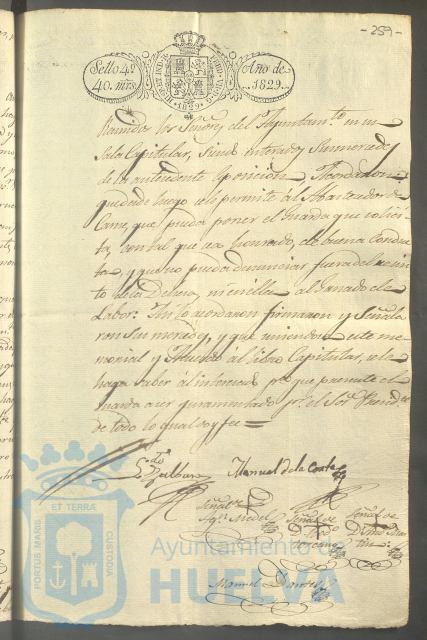 -259-
Sello 4º
40. mrs
Año de
1829.
HISPAN. ET IND. R.
FERD. VII. D. G.
1829
Reunidos los Señores del Ayuntamto en su
Sala Capitular, siendo enterados sus mercedes
de la antecedente exposicion Acordaron:
que desde luego se le permite al Abastecedor de
Carne, que pueda poner el Guarda que solici-
ta, con tal que sea honrado, de buena Conduc-
ta, y que no pueda denunciar fuera del recin-
to de la Dehesa, ni en ella al Ganado de
Labor: Asi lo acordaron firmaron y Señala-
ron sus mercedes, y que uniendose este me-
morial y Acuerdo al libro Capitular, se le
haga saber al interesado pa que presente el
Guarda a ser juramentado pr. el Sor. Presidte
de todo lo qual doy fee =
Manuel de la Corte
Señal de
Señal de
Señal de
Medel
Manuel
PORTUS MARIS
ET TERRÆ
CUSTODIA
Ayuntamiento de
HUELVA